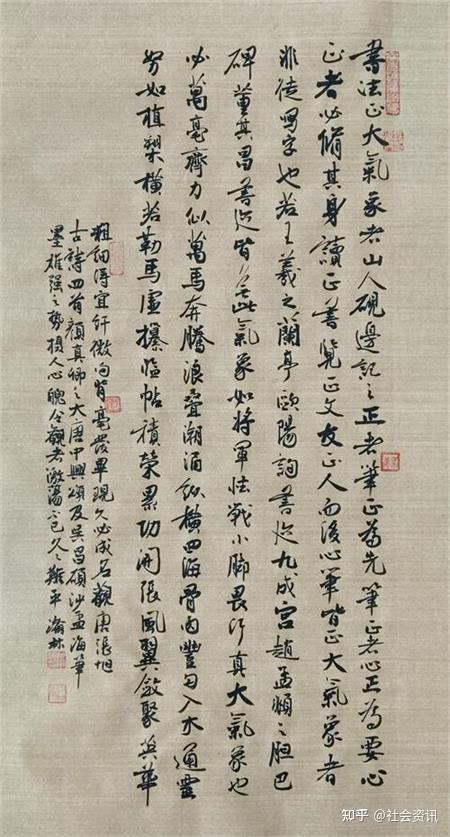 書法正大氣象老山人硯邊記之正者筆正為先筆正者心正為要心
正者必脩其身讀正書覽正文友正人而後心筆皆正大氣象者
非徒寫字也若王羲之蘭亭歐陽詢書跡九成宮趙孟頫之胆巴
碑董其昌書跡皆具此氣象如將軍怯戰小腳畏行真大氣象也
必萬毫齊力似萬馬奔騰浪疊潮涌縱橫四海骨肉豐勻入木通靈
努如植槊橫若勒馬虛攥臨帖積榮累功開張風翼斂聚英華
粗細得宜纖微向背毫髮畢現久必成名觀唐張旭
古詩四首顏真卿之大唐中興頌及吳昌碩沙孟海筆
墨雄强之勢摄人心魄令觀者激蕩不已久久難平瀚林
知乎 @社会资讯